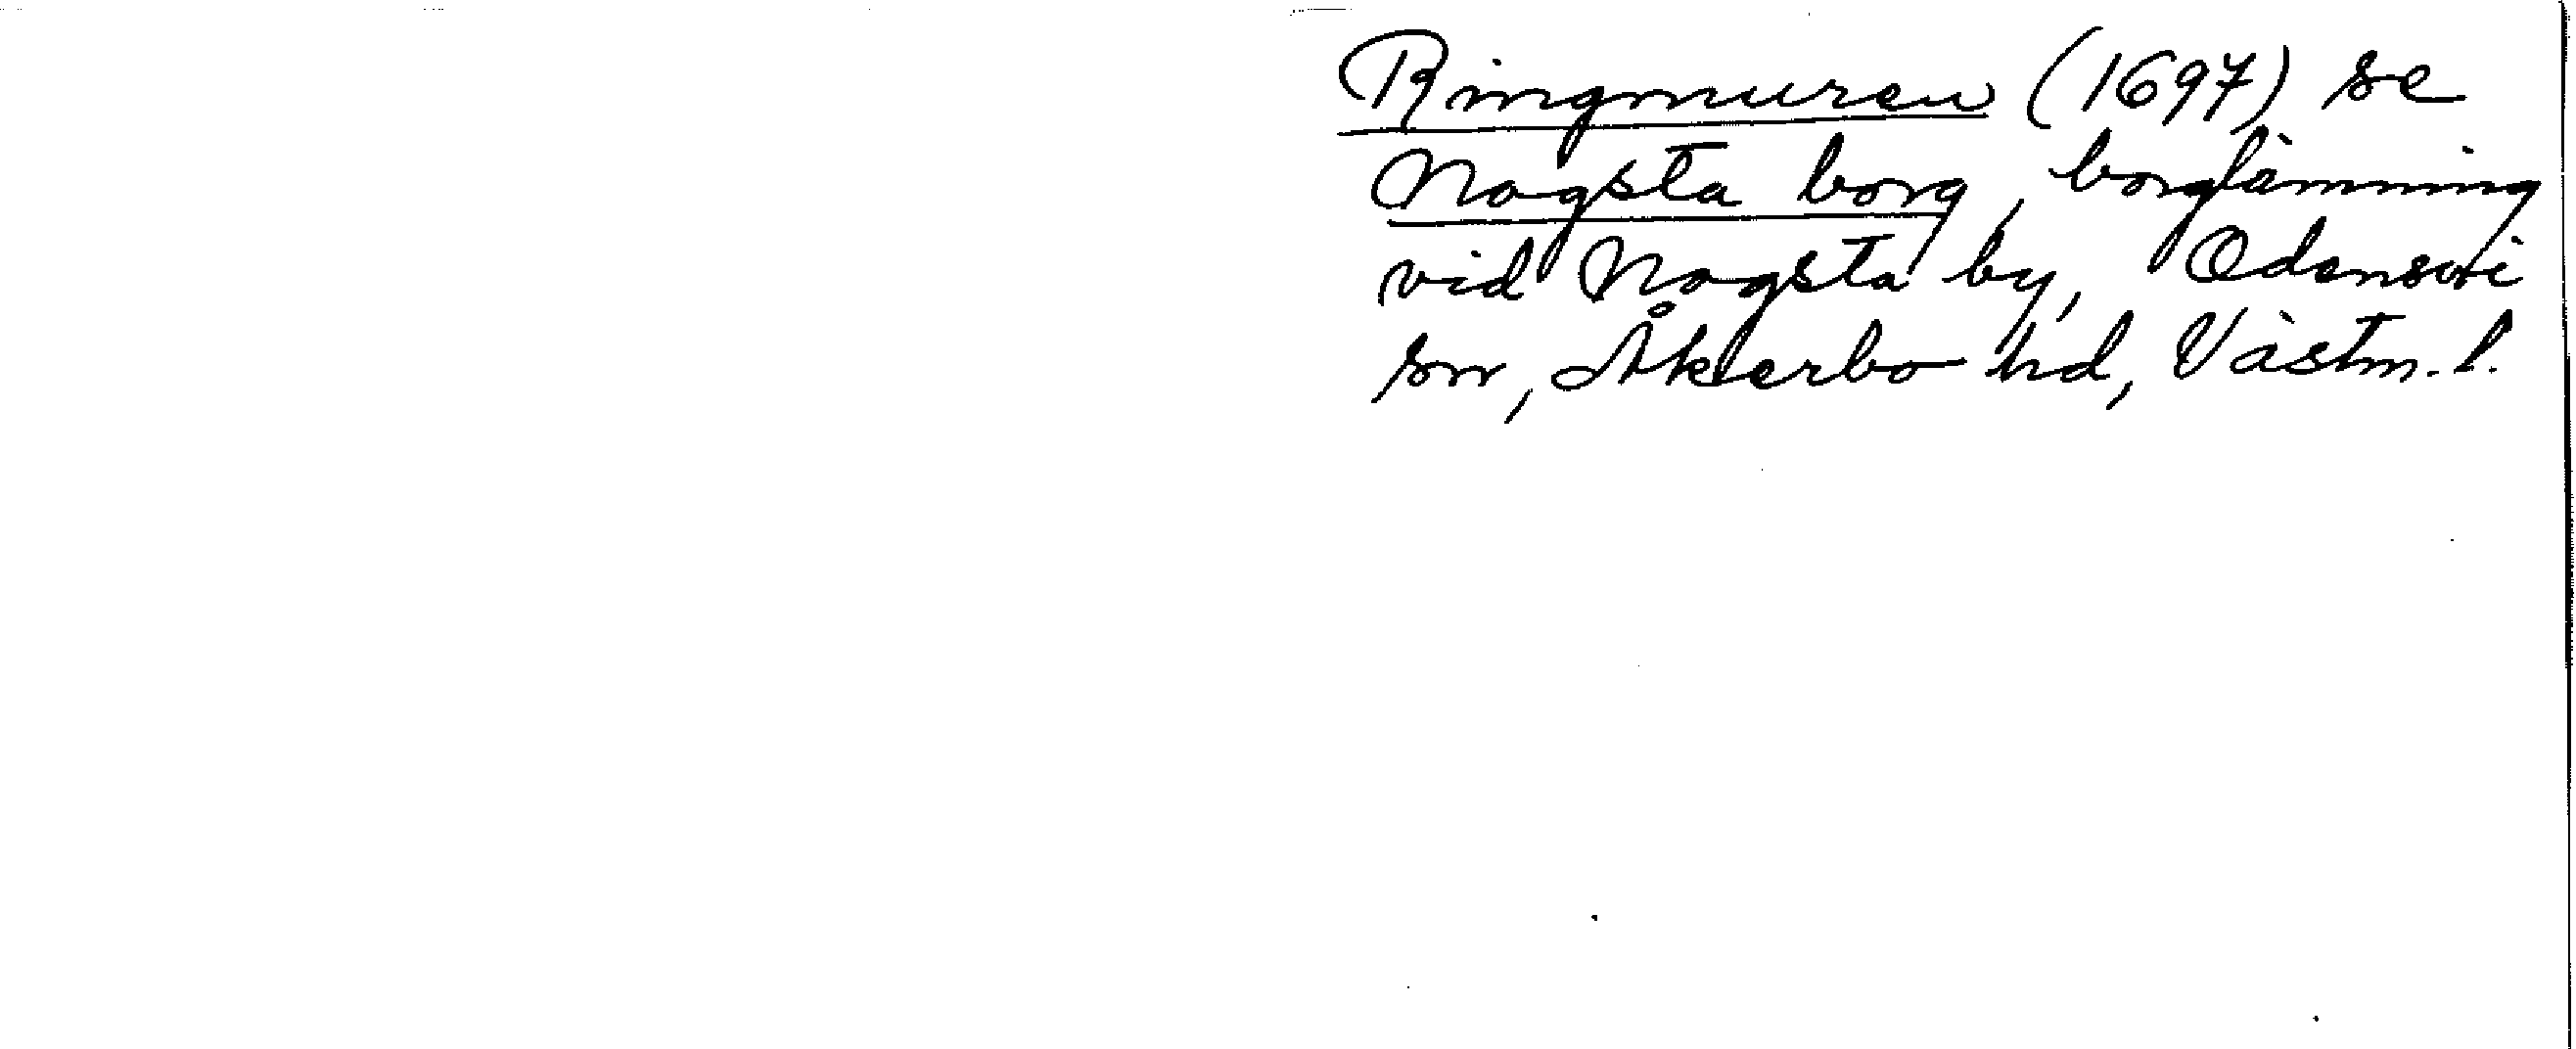 Ringmuren (1697) se
Nogsta borg, borglämning
vid Nogsta by, Odensvi
sn, Åkerbo hd, Västm. l.